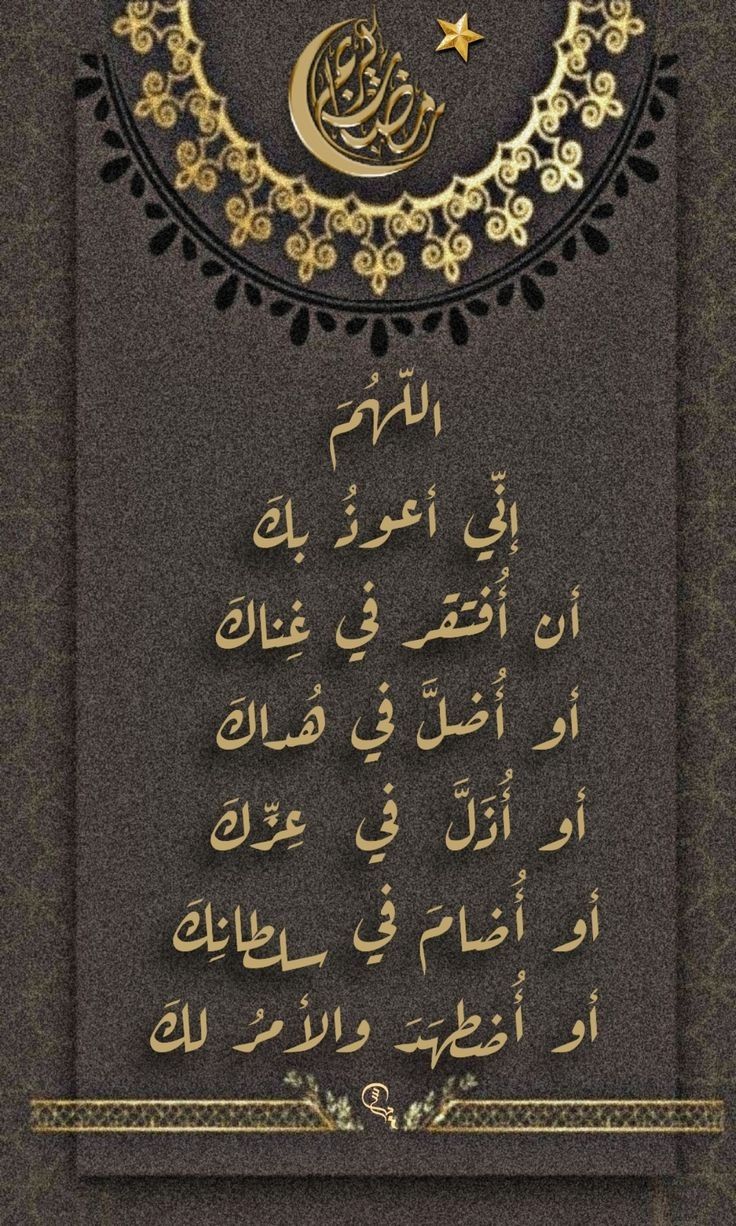 رمضان كريم
اللّهُمَ
إنّي أعوذُ بكَ
أن أُفتقر في غِناكَ
أو أُضلَّ في هُداكَ
أو أُذَلَّ في عِزِّكَ
أو أُضامَ في سلطانِكَ
أو أُضطهَدَ والأمرُ لكَ